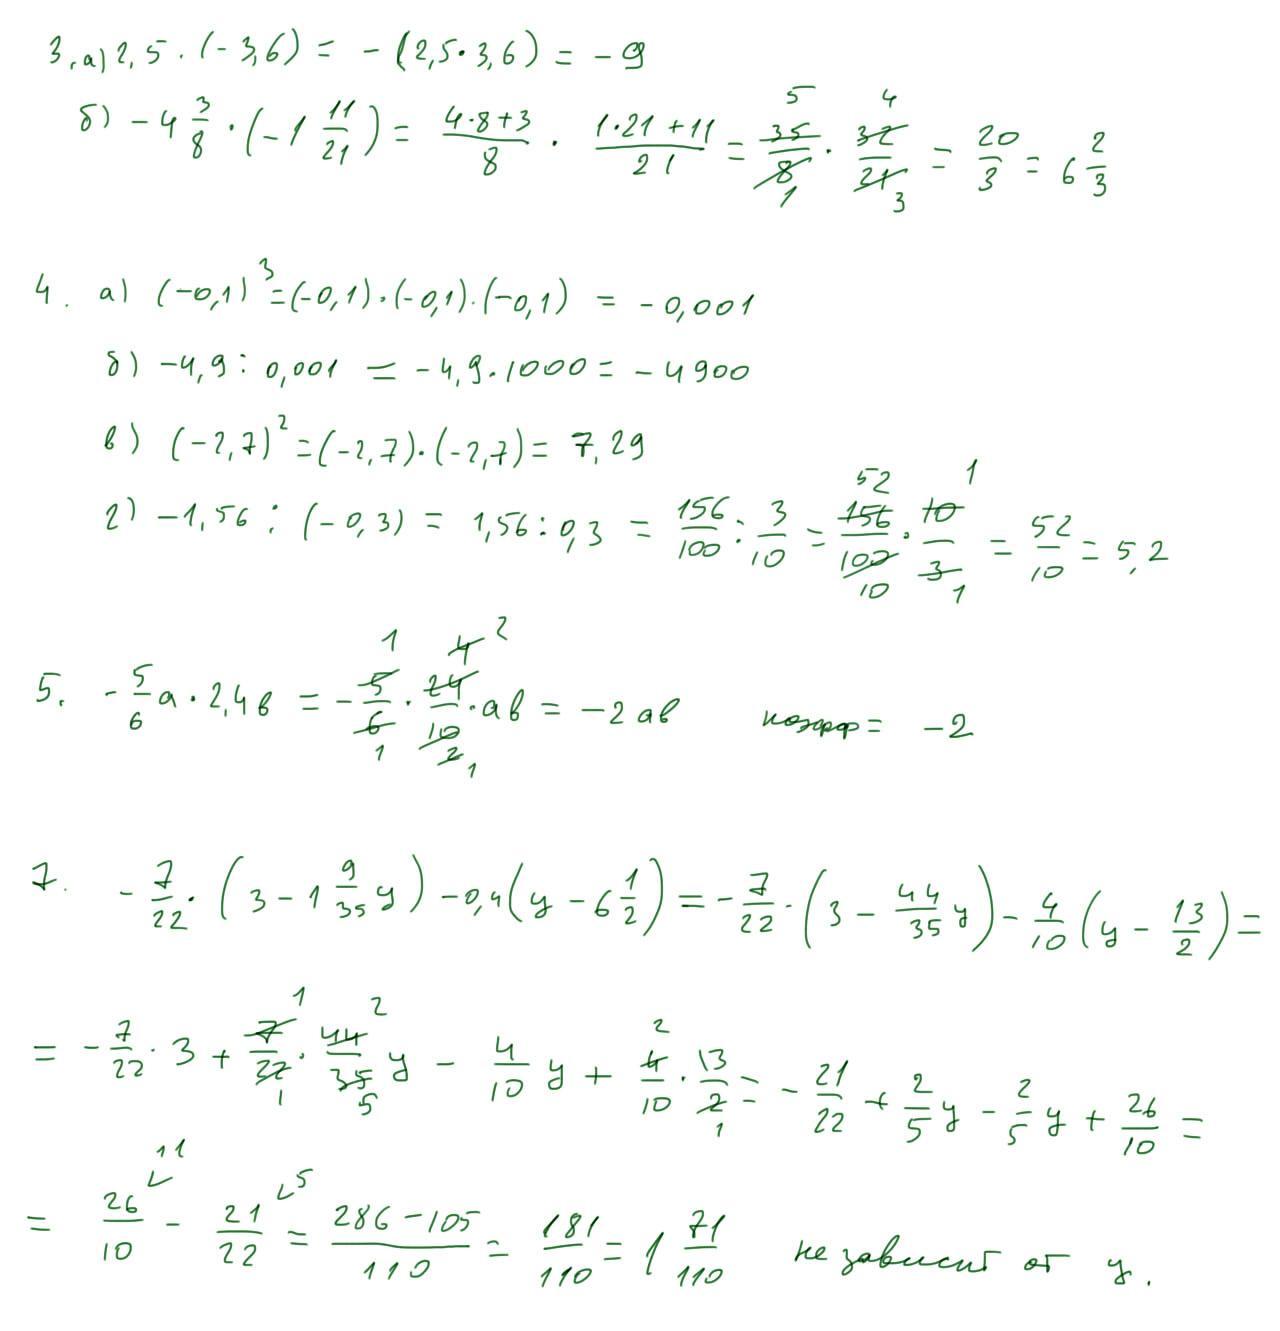 3. а) 2,5 · (-3,6) = -(2,5 · 3,6) = -9
б) -4 3/8 · (-1 11/21) = (4·8+3)/8 · (1·21+11)/21 = 35/8 · 32/21 = 20/3 = 6 2/3
4. а) (-0,1)³ = (-0,1)·(-0,1)·(-0,1) = -0,001
б) -4,9 : 0,001 = -4,9·1000 = -4900
в) (-2,7)² = (-2,7)·(-2,7) = 7,29
г) -1,56 : (-0,3) = 1,56 : 0,3 = 156/100 : 3/10 = 156/100 · 10/3 = 52/10 = 5,2
5. -5/6 а · 2,4в = -5/6 · 24/10 · ав = -2ав коэфф = -2
7. -7/22 · (3 - 1 9/35 y) - 0,4(y - 6 1/2) = -7/22 · (3 - 44/35 y) - 4/10 (y - 13/2) =
= -7/22 · 3 + 7/22 · 44/35 y - 4/10 y + 4/10 · 13/2 = -21/22 + 2/5 y - 2/5 y + 26/10 =
= 26/10 - 21/22 = (286-105)/110 = 181/110 = 1 71/110 не зависит от y.